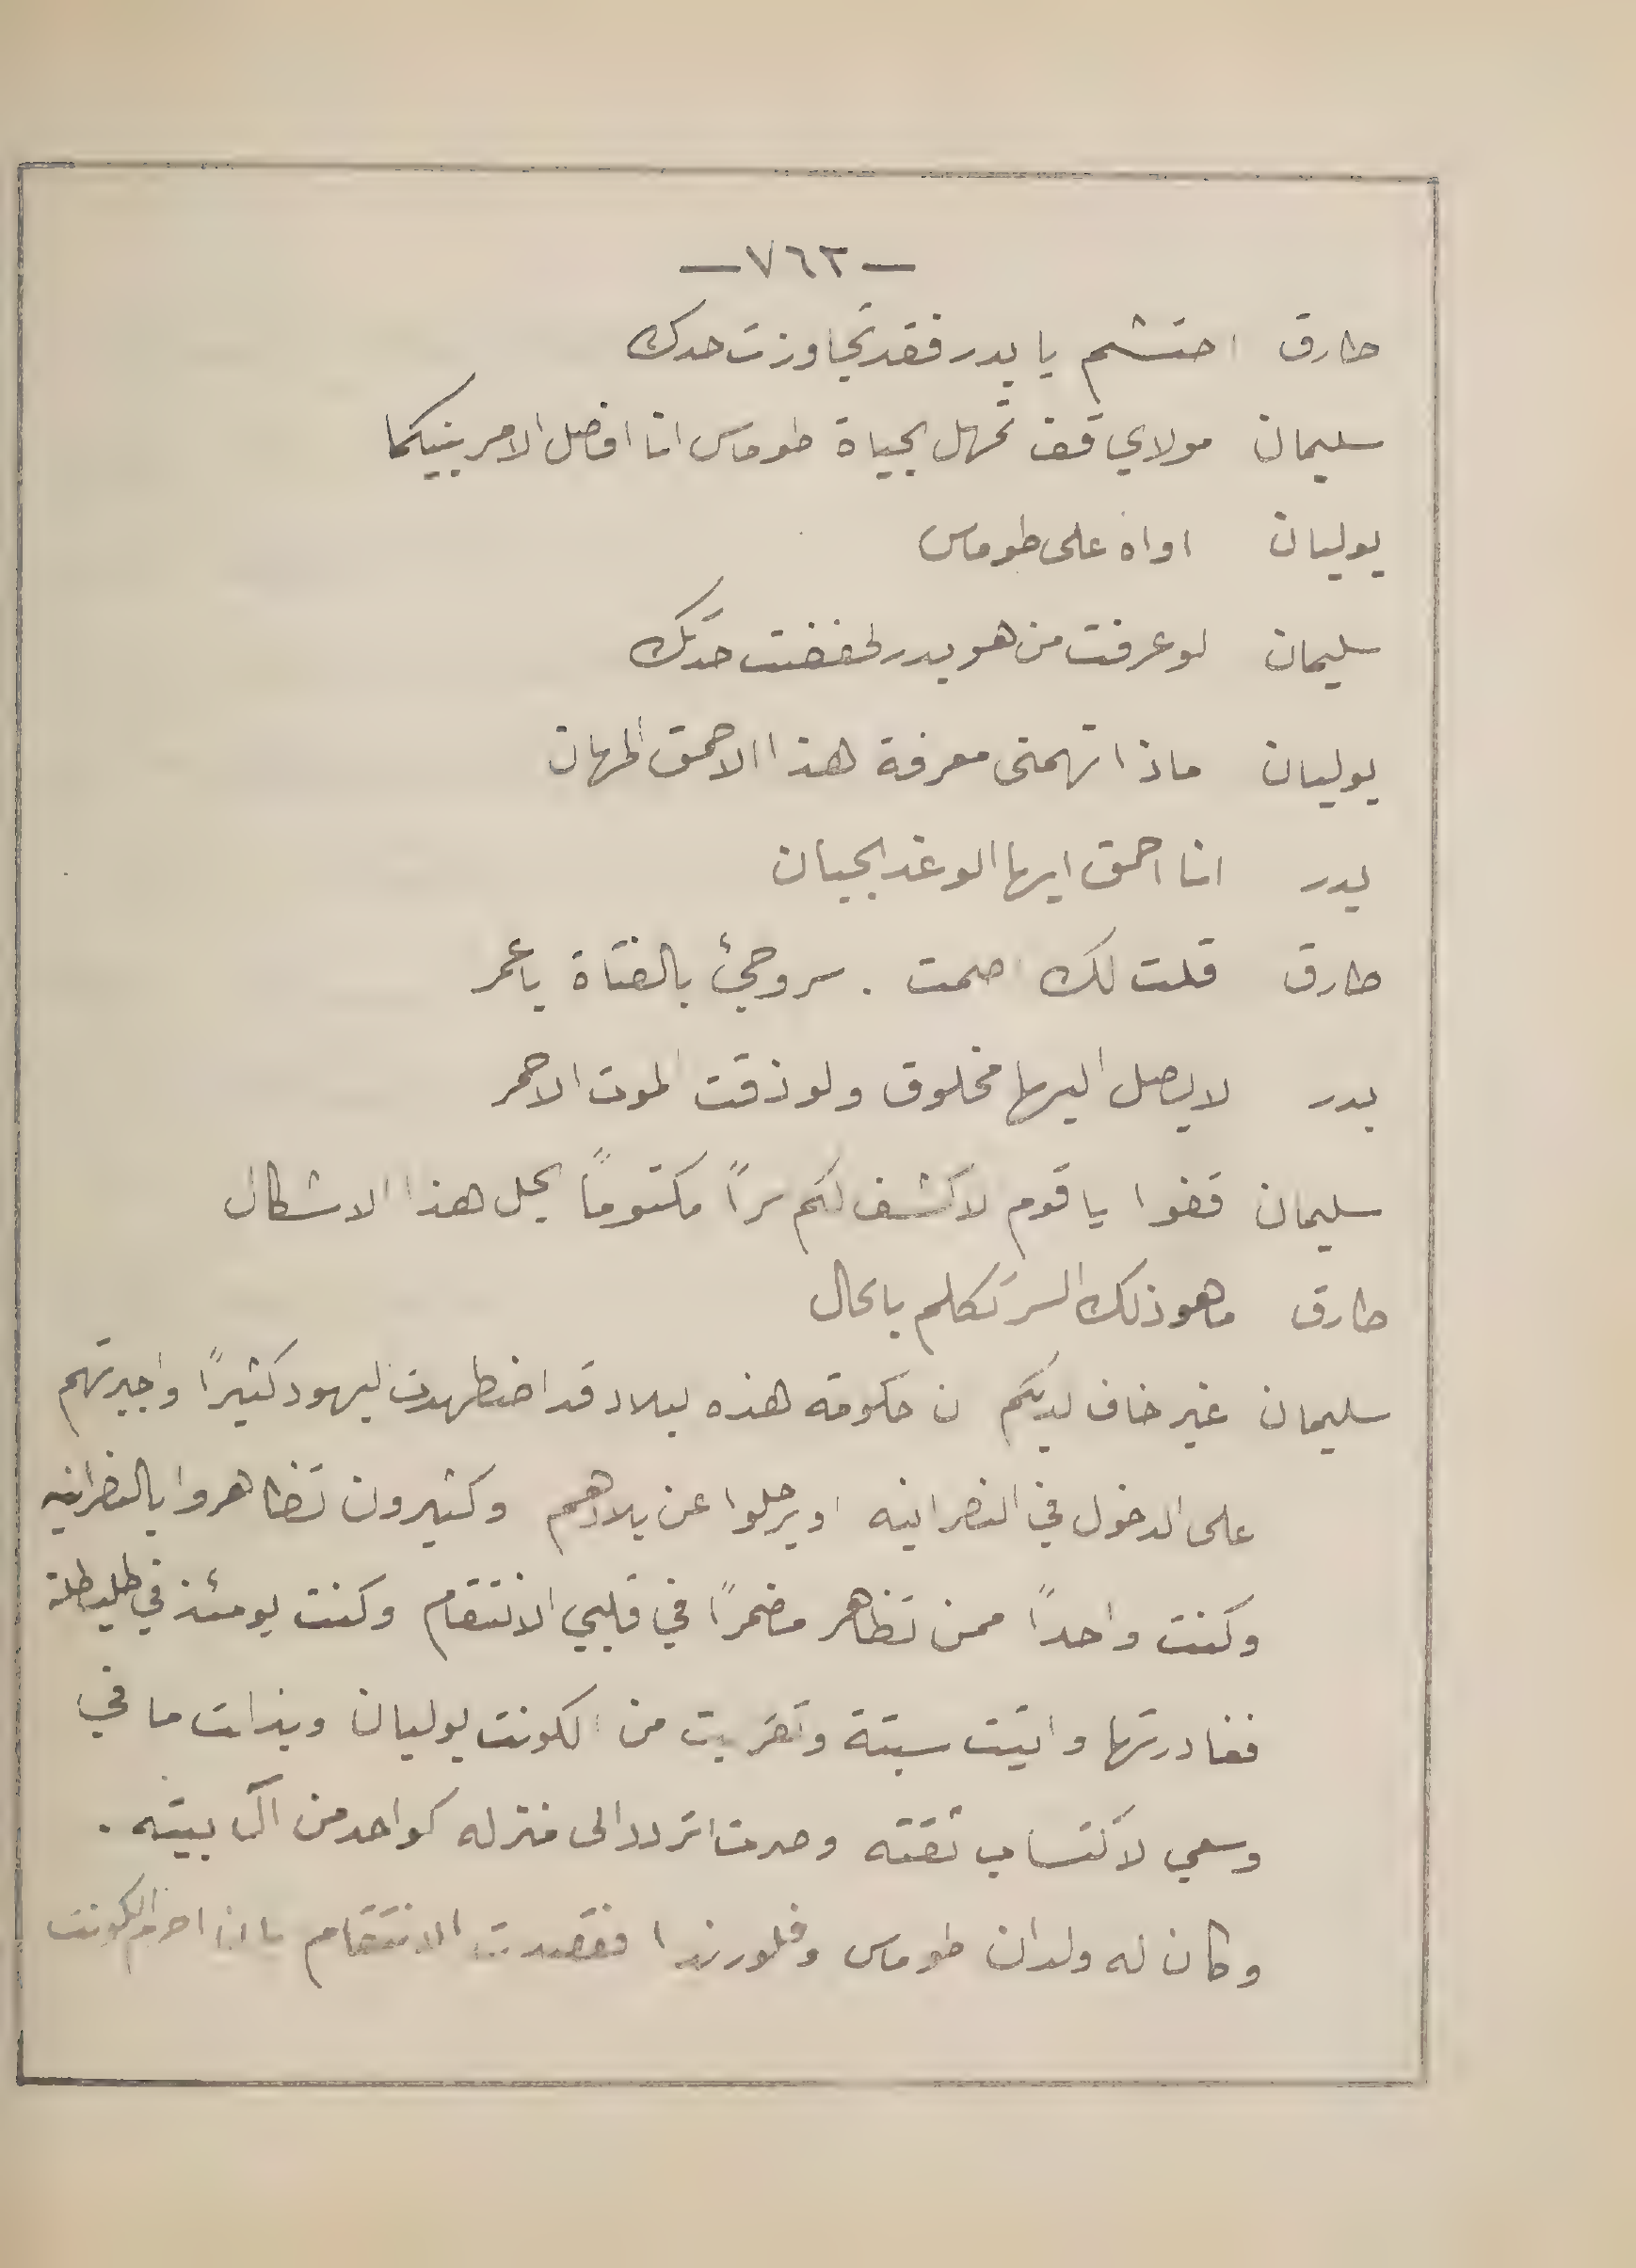 — ٧٦٢ —
طارق احتشم يا بدر فقد تجاوزت حدك
سليمان مولاي قف تمهل بحياة طوماس انا افضل الامر بينكما
يوليان اواه على طوماس
سليمان لو عرفت من هو بدر لخفضت حدتك
يوليان ماذا تهمنى معرفة هذا الاحمق المهان
بدر انا احمق ايها الوغد الجبان
طارق قلت لك اصمت . سر وجئ بالفتاة يا عمر
بدر لا يصل اليها مخلوق ولو ذقت الموت الاحمر
سليمان قفوا يا قوم لاكشف لكم سراً مكتوماً يحل هذا الاشكال
طارق ما هو ذلك السر تكلم بالحال
سليمان غير خاف لديكم ن حكومة هذه لبلاد قد اضطهدت ليهود كثيراً واجبرتهم
على الدخول في النصرانيه او يرحلوا عن بلادهم وكثيرون تظاهروا بالنصرانيه
وكنت واحداً ممن تظاهر مضمراً في قلبي الانتقام وكنت يومئذ في طليطلة
فغادرتها واتيت سبتة وتقربت من الكونت يوليان وبذلت ما في
وسعي لاكتساب ثقته وصرت اتردد الى منزله كواحد من آل بيته .
وكان له ولدان طوماس وفلورندا فقصدت الانتقام بان احرم الكونت